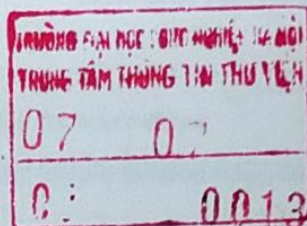 TRƯỜNG ĐẠI HỌC CÔNG NGHIỆP HÀ NỘI
TRUNG TÂM THÔNG TIN THƯ VIỆN
07 07
0 0013